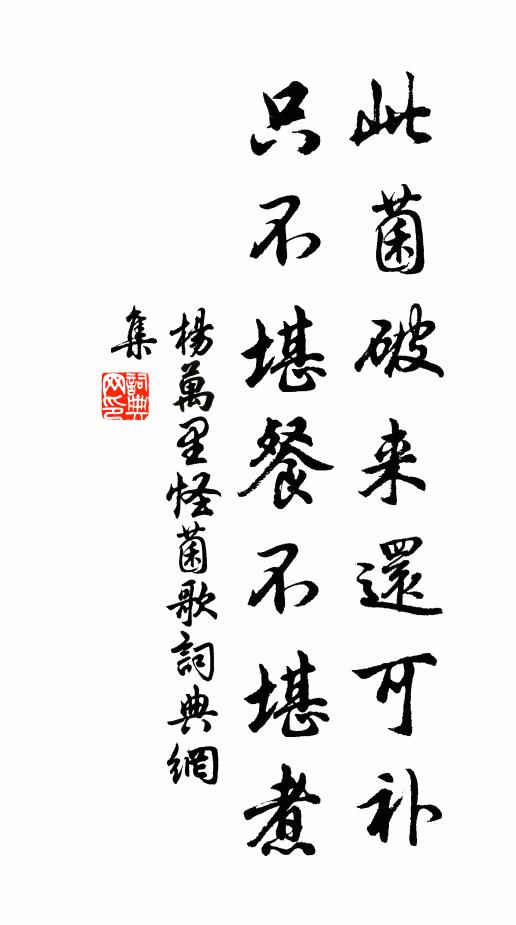 此菌破来還可补
只不堪餐不堪煮
楊萬里怪菌歌詞典網
集
詞典网印